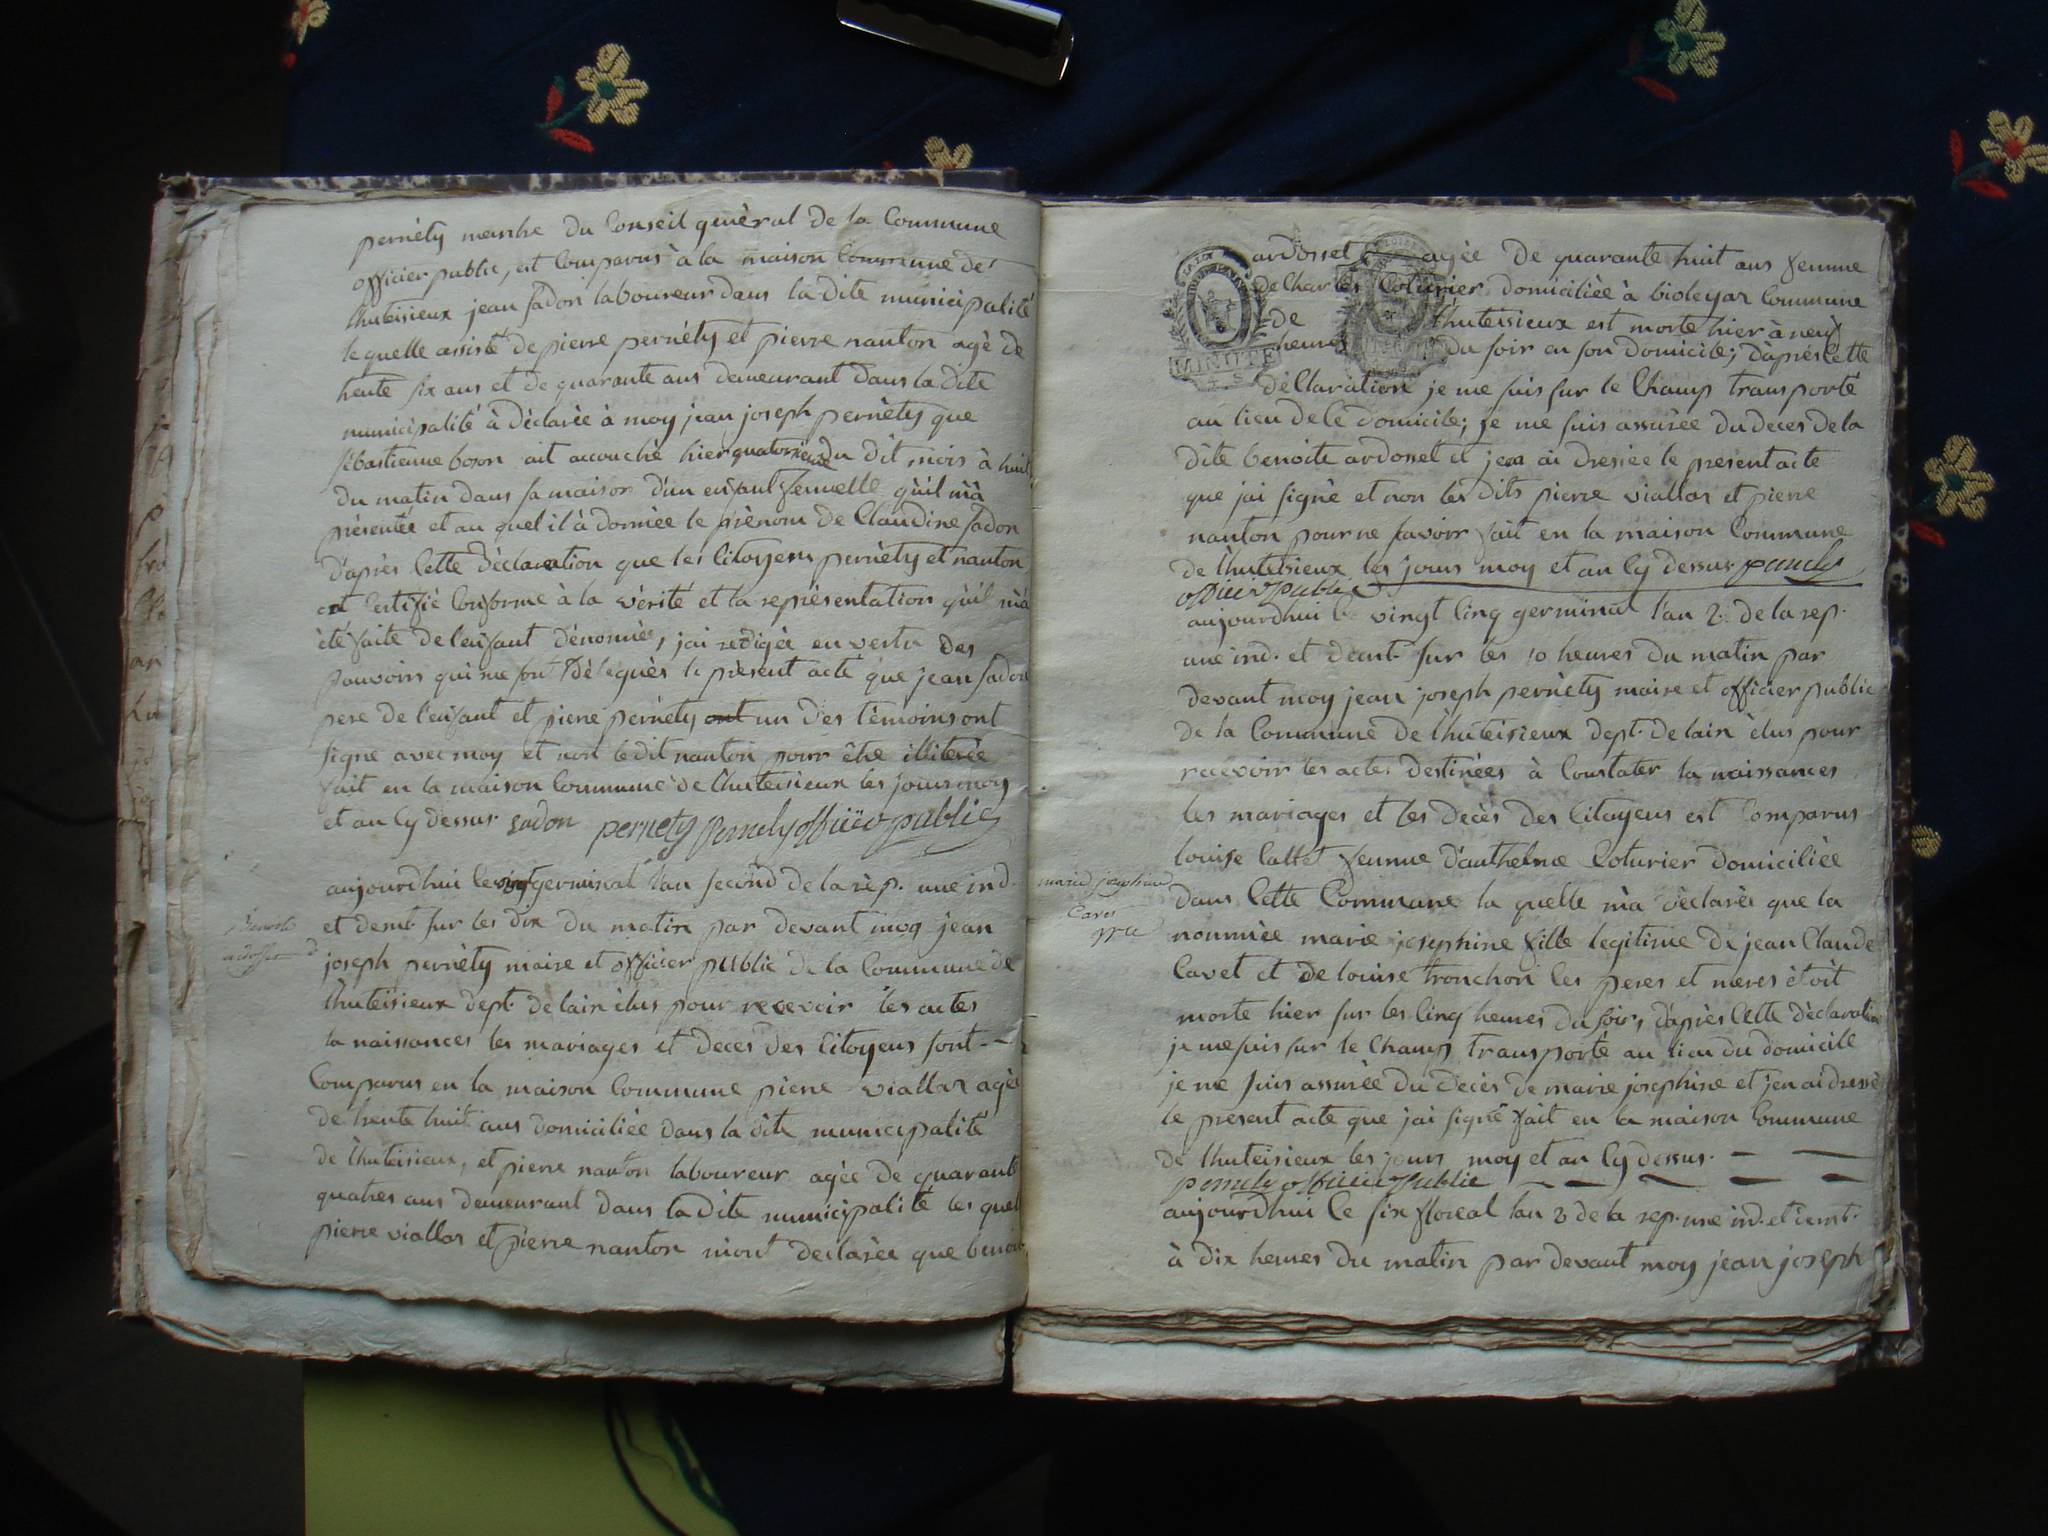 pernéty membre du Conseil genéral de la Commune
officier public, est Comparus à la maison Commune de
Lhuteisieux jean sadon laboureur dans la dite municipalité
lequelle assisté de pierre pernéty et pierre nanton agè de
trente six ans et de quarante ans demeurant dans la dite
municipalité à dèclarèe à moy jean joseph pernèty que
sèbastienne boson ait accouchè hier quatorze du dit mois à huit
du matin dans sa maison d'un enfant femelle qu'il m'à
présentée et au quel il à donnèe le prènom de Claudine sadon
d'après Cette dèclaration que les Citoyens pernèty et nanton
ont Certifié Conforme à la vèrité et la représentation qu'il m'à
èté faite de l'enfant dénomèe, jai redigèe en vertu des
pouvoirs qui me sont dèleguès le prèsent acte que jean sadon
pere de l'enfant et pierre pernèty ont un des tèmoins ont
signe avec moy et non ledit nanton pour être illiterée
fait en la maison Commune de Lhuteisieux les jours moy
et an Cy dessus sadon pernety pernety officier public
aujourdhui le germinal l'an second de la rèp. une ind.
et demt. sur les dix du matin par devant moy jean
Benoite
ardosset
joseph pernèty maire et officier public de la Commune de
Lhuteisieux dept. de lain èlus pour recevoir les actes
la naissances les mariages et deces des Citoyens sont
Comparus en la maison Commune pierre viallon agèe
de trente huit ans domiciliée dans la dite municipalité
de Lhuteisieux, et pierre nanton laboureur agèe de quarante
quatres ans demeurant dans la dite municipalité les quel
pierre viallon et pierre nanton m'ont declarèe que benoite
ardosset agèe de quarante huit ans femme
de Charles Coturier domiciliée à bioleyaz Commune
de Lhuteisieux est morte hier à neuf
heures du soir en son domicile; d'après Cette
dèClaration je me suis sur le Champ transporté
au lieu de Ce domicile; je me suis assurèe du deces de la
dite benoite ardosset et jen ai dressèe le present acte
que jai signè et non les dits pierre viallon et pierre
nanton pour ne savoir fait en la maison Commune
de Lhuteisieux les jours moy et an Cy dessus pernety
officier public
aujourdhui le vingt Cinq germinal l'an 2. de la rep.
une ind. et demt. sur les 10 heures du matin par
devant moy jean joseph pernèty maire et officier public
de la Commune de Lhuteisieux dept. de lain èlus pour
recevoir les actes destinèes à Constater la naissances
les mariages et les decès des Citoyens est Comparus
louise Callet femme d'anthelme Coturier domicilièe
marie josephine
Cavet
dans Cette Commune la quelle m'à dèclarès que la
nommèe marie josephine fille legitime de jean Claude
Cavet et de louise tronchon les peres et meres ètoit
morte hier sur les Cinq heures du soir, d'après Cette dèclaration
je me suis sur le Champ transporté au lieu du domicile
je me suis assurèe du decès de marie josephine et jen ai dressè
le present acte que jai signè fait en la maison Commune
de Lhuteisieux les jours moy et an Cy dessus.
pernety officier public
aujourdhui le six floreal lan 2 de la rep. une ind. et demt.
à dix heures du matin par devant moy jean joseph
LA LOI
MINUTE